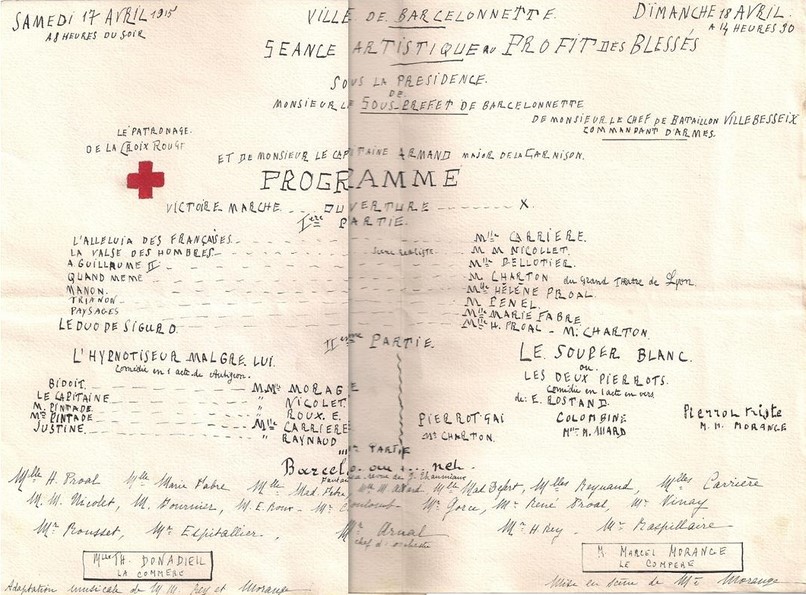 SAMEDI 17 AVRIL 1915
A 8 HEURES DU SOIR
VILLE DE BARCELONNETTE.
DIMANCHE 18 AVRIL.
A 14 HEURES 30
SEANCE ARTISTIQUE AU PROFIT DES BLESSÉS
SOUS LA PRESIDENCE.
DE
MONSIEUR LE SOUS-PREFET DE BARCELONNETTE
DE MONSIEUR LE CHEF DE BATAILLON VILLEBESSEIX
COMMANDANT D'ARMES.
LE PATRONAGE.
DE LA CROIX ROUGE
ET DE MONSIEUR LE CAPITAINE ARMAND MAJOR DE LA GARNISON.
PROGRAMME
VICTOIRE MARCHE OUVERTURE X.
Ière PARTIE.
L'ALLELUIA DES FRANÇAISES Mlle CARRIERE.
LA VALSE DES HOMBRES Scène réaliste M M NICOLLET.
A GUILLAUME II Mlle PELLOTIER.
QUAND MEME M CHARTON du Grand Theatre de Lyon.
MANON. Mlle HÉLÈNE PROAL.
TRIANON M PENEL.
PAYSAGES Mlle MARIE FABRE
LE DUO DE SIGURD. Mlle H. PROAL - M. CHARTON.
IIeme PARTIE.
L'HYPNOTISEUR MALGRE LUI.
Comédie en 1 acte de
BIDOIT. M.M. MORAGE
LE CAPITAINE " NICOLET.
M. PINTADE. " ROUX. E.
Me PINTADE Mlle CARRIERE
JUSTINE. " RAYNAUD
LE SOUPER BLANC.
ou
LES DEUX PIERROTS.
Comédie en 1 acte en vers
de: E. ROSTAND.
PIERROT-GAI
Mr CHARTON.
COLOMBINE
Mlle M. ALLARD
Pierrot triste
M. M. MORANGE
PARTIE
Mlle H. Proal Mlle Marie Fabre Mlle Mad. M. Allard Mlle Mad Mlles Reynaud, Mlles Carriere
M. M. Nicolet, M. E. Roux Mr Mr Mr René Proal, Mr Vinay
Mr Rousset, Mr Espitallier. Mr Arnal Mr H Rey Mr Raspillaire
chef d'orchestre
Mlle TH. DONADIEU
LA COMMÈRE
M. MARCEL MORANGE
LE COMPÈRE
Adaptation musicale de M.M. Rey et Morange
Mise en scène de Mr Morange